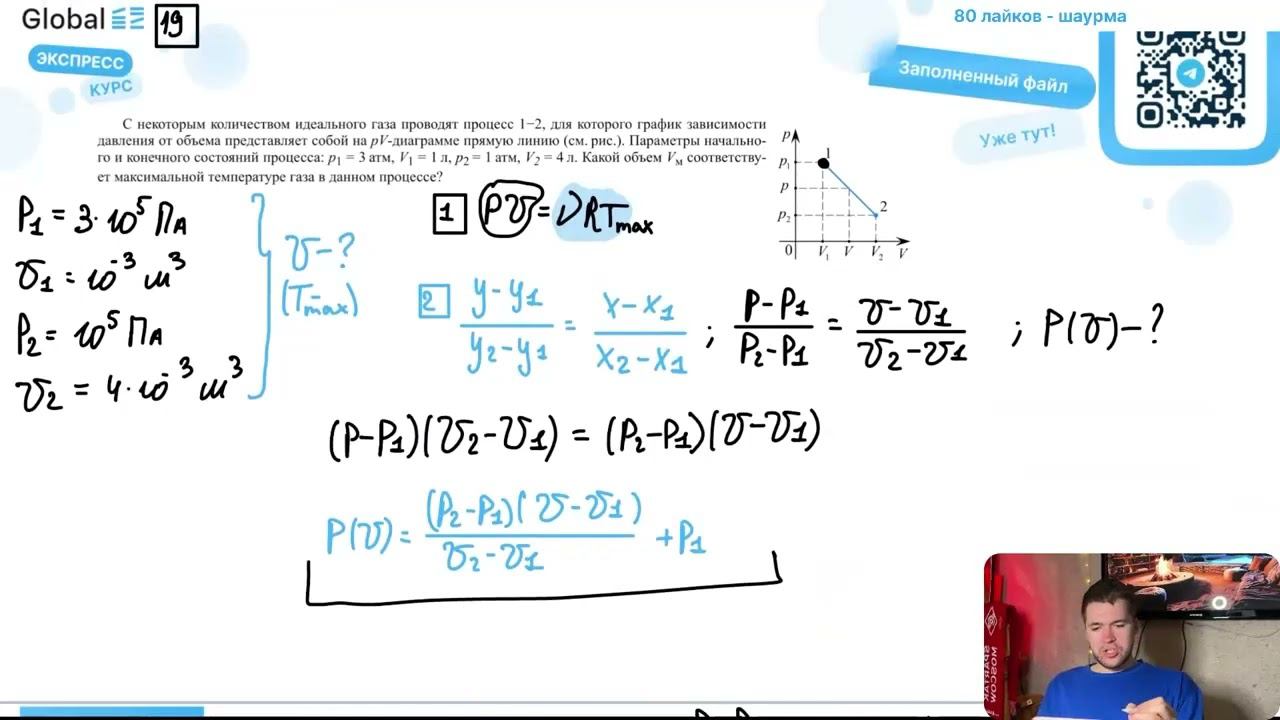 Global ΞΞ 19
80 лайков - шаурма
ЭКСПРЕСС
КУРС
Заполненный файл
Уже тут!
С некоторым количеством идеального газа проводят процесс 1−2, для которого график зависимости
давления от объема представляет собой на pV-диаграмме прямую линию (см. рис.). Параметры начально-
го и конечного состояний процесса: p₁ = 3 атм, V₁ = 1 л, p₂ = 1 атм, V₂ = 4 л. Какой объем Vм соответству-
ет максимальной температуре газа в данном процессе?
p
p₁
p
p₂
0
V₁ V V₂ V
1
2
P₁ = 3·10⁵ Па
V₁ = 10⁻³ м³
P₂ = 10⁵ Па
V₂ = 4·10⁻³ м³
V-?
(Tmax)
1 PV = νRTmax
2 (y-y₁)/(y₂-y₁) = (x-x₁)/(x₂-x₁) ; (P-P₁)/(P₂-P₁) = (V-V₁)/(V₂-V₁) ; P(V)-?
(P-P₁)(V₂-V₁) = (P₂-P₁)(V-V₁)
P(V) = (P₂-P₁)(V-V₁)/(V₂-V₁) + P₁
SPARTAK
MOSCOW